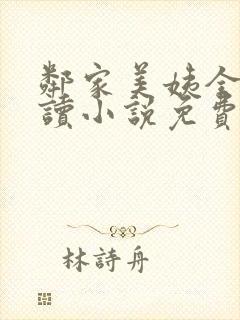 鄰家美姨全
讀小說免費
林詩舟